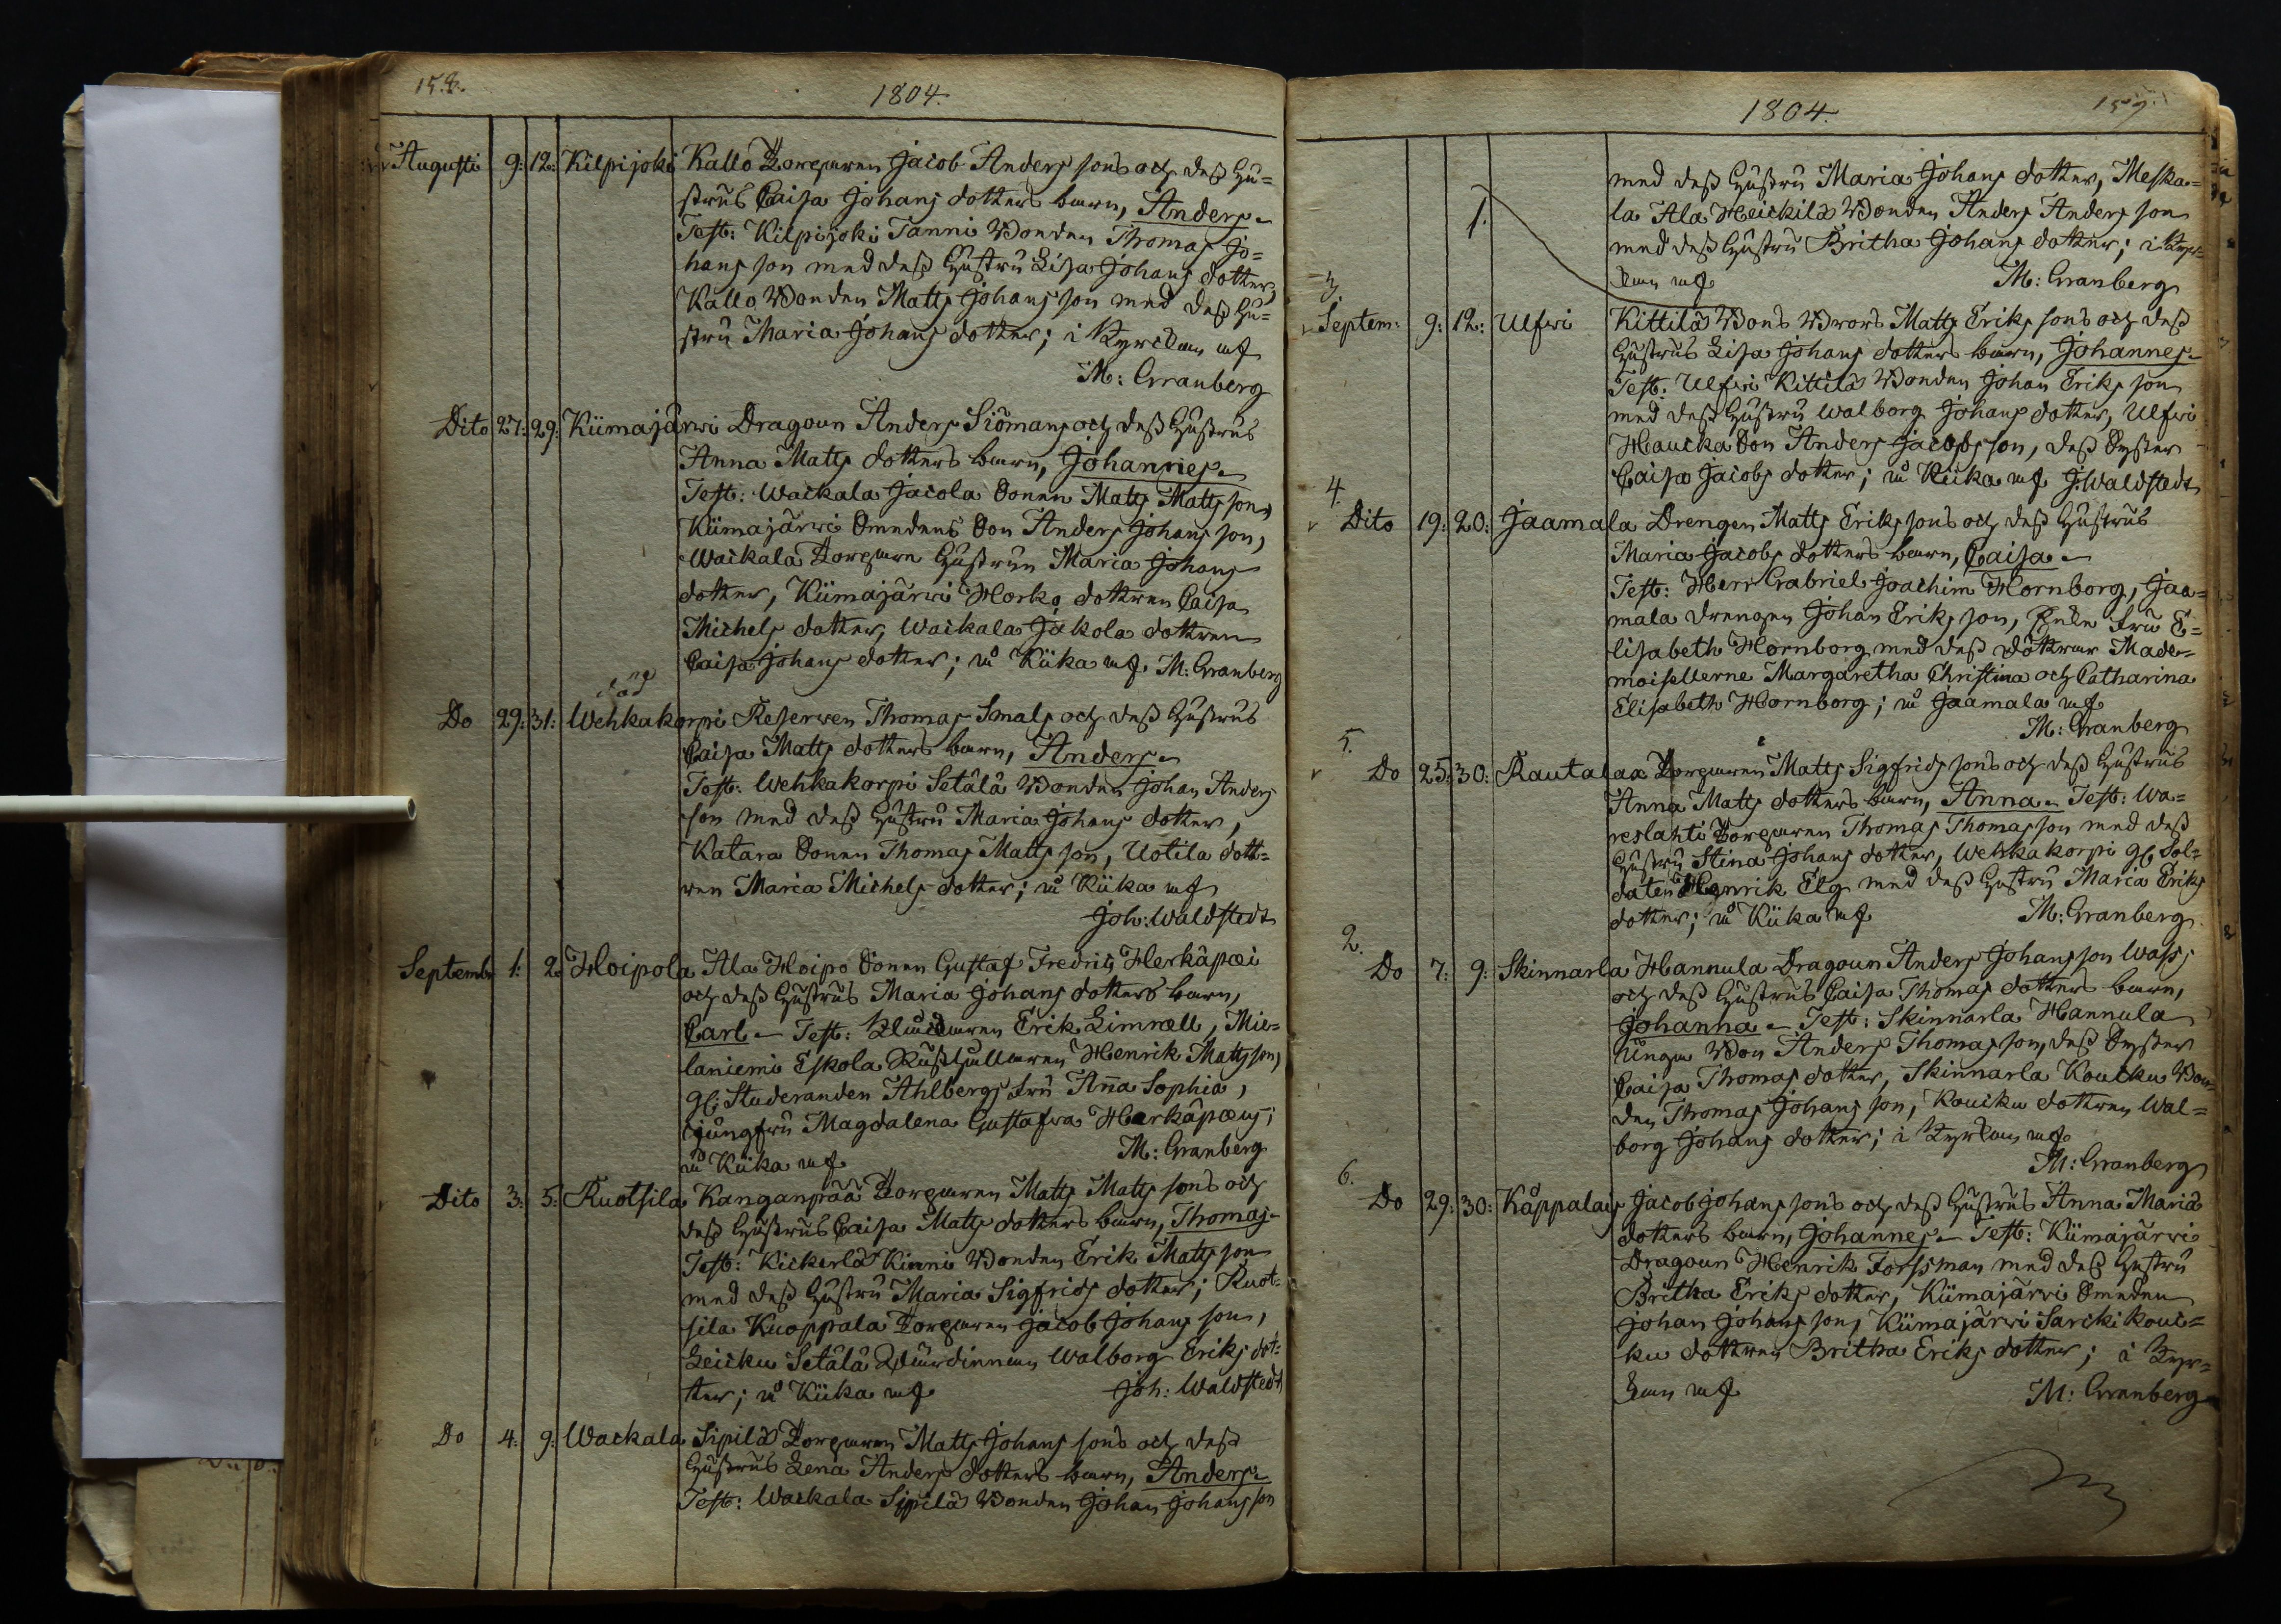 158.
1804.
Augusti 9: 12: Kilpijoki Kallo Torparen Jacob Anders sons och dess Hu=
strus Caisa Johans dotters barn, Anders
Test: Kilpijoki Tanni Bonden Thomas Jo=
hans son med dess Hustru Lisa Johans dotter,
Kallo Bonden Matts Johans son med dess Hu=
stru Maria Johans dotter; i Kyrckan af
M: Granberg
Dito 27: 29: Kiimajärwi Dragoun Anders Siömans och dess Hustrus
Anna Matts dotters barn, Johannes
Test: Wackala Jacola Sonen Matts Matts son,
Kiimajärwi Smedens Son Anders Johans son,
Wackala Torpare Hustrun Maria Johans
dotter, Kiimajärwi Horko dottren Caisa
Michels dotter, Wackala Jakola dottren
Caisa Johans dotter; på Kiika af M: Granberg
död
Do 29: 31: Wehkakorpi Reserven Thomas Smals och dess Hustrus
Caisa Matts dotters barn, Anders
Test: Wehkakorpi Setälä Bonden Johan Anders
son med dess Hustru Maria Johans dotter,
Katara Sonen Thomas Matts son, Uotila dott=
ren Maria Michels dotter; på Kiika af
Joh: Waldstedt
Septembr 1: 2: Hoipola Ala Hoipo Sonen Gustaf Fredric Herkäpæi
och dess Hustrus Maria Johans dotters barn,
Carl Test: Klockaren Erik Limnell, Mie=
laniemi Eskola Rusthållaren Henrik Mattsson,
Studeranden Ahlbergs Fru Anna Sophia,
Jungfru Magdalena Gustafva Herkäpæus;
på Kiika af M: Granberg
Dito 3: 5: Ruotsila Kanganpää Torparen Matts Matts sons och
dess Hustrus Caisa Matts dotters barn, Thomas
Test: Kickerlä Kinni Bonden Erik Matts son
med dess Hustru Maria Sigfrids dotter; Ruot=
sila Kuoppala Torparen Jacob Johans son,
Leicku Setälä Wärdinnan Walborg Eriks dot=
ter; på Kiika af Joh: Waldstedt
Do 4: 9: Wackala Sipilä Torparen Matts Johans sons och dess
Hustrus Lena Anders dotters barn, Anders
Test: Wackala Sipilä Bonden Johan Johans son
1804.
159.
med dess Hustru Maria Johans dotter, Meska=
la Ala Heickilä Bonden Anders Anders son
1.
med dess Hustru Britha Johans dotter; i Kyr=
kan af M: Granberg
3.
Septem: 9: 12: Ulfwi Kittilä Bons Brors Matts Eriks sons och dess
Hustrus Lisa Johans dotters barn, Johannes
Test: Ulfwi Kittilä Bonden Johan Eriks son
med dess Hustru Walborg Johans dotter, Ulfwi
Haucka Son Anders Jacobs son, dess Syster
Caisa Jacobs dotter; på Kiika af J: Waldstedt
4.
Dito 19: 20: Jaamala Drengen Matts Eriks sons och dess Hustrus
Maria Jacobs dotters barn, Caisa
Test: Herr Gabriel Joachim Hornborg, Jaa=
mala drengen Johan Eriks son, Enke Fru E=
lisabeth Hornborg med dess döttrar Made=
moisellerne Margaretha Christina och Catharina
Elisabeth Hornborg; på Jaamala af
M: Granberg
5.
Do 25: 30: Rautalax Torparen Matts Sigfrids sons och dess Hustrus
Anna Matts dotters barn, Anna Test: Wa=
reslahti Torparen Thomas Thomas son med dess
Hustru Stina Johans dotter, Wehkakorpi Sol=
daten Henrik Elg med dess Hustru Maria Eriks
dotter; på Kiika af M: Granberg
2.
Do 7: 9: Skinnarla Hannula Dragoun Anders Johans son Wass
och dess Hustrus Caisa Thomas dotters barn,
Johanna Test: Skinnarla Hannula
unga Bon Anders Thomas son, dess Syster
Caisa Thomas dotter, Skinnarla Koucku Bon=
den Thomas Johans son, Koucku dottren Wal=
borg Johans dotter; i Kyrkan af
M: Granberg
6.
Do 29: 30: Käppälax Jacob Johans sons och dess Hustrus Anna Maria
dotters barn, Johannes Test: Kiimajärwi
Dragoun Henrik Forssman med dess Hustru
Britha Eriks dotter, Kiimajärwi Smeden
Johan Johans son, Kiimajärwi Sarcki Kouc=
ku dottren Britha Eriks dotter; i Kyr=
kan af M: Granberg